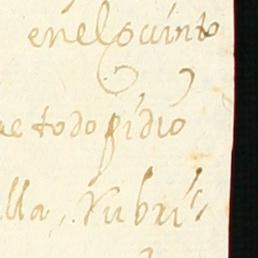 en el quinto
ae todo pidio
lla, Rubric